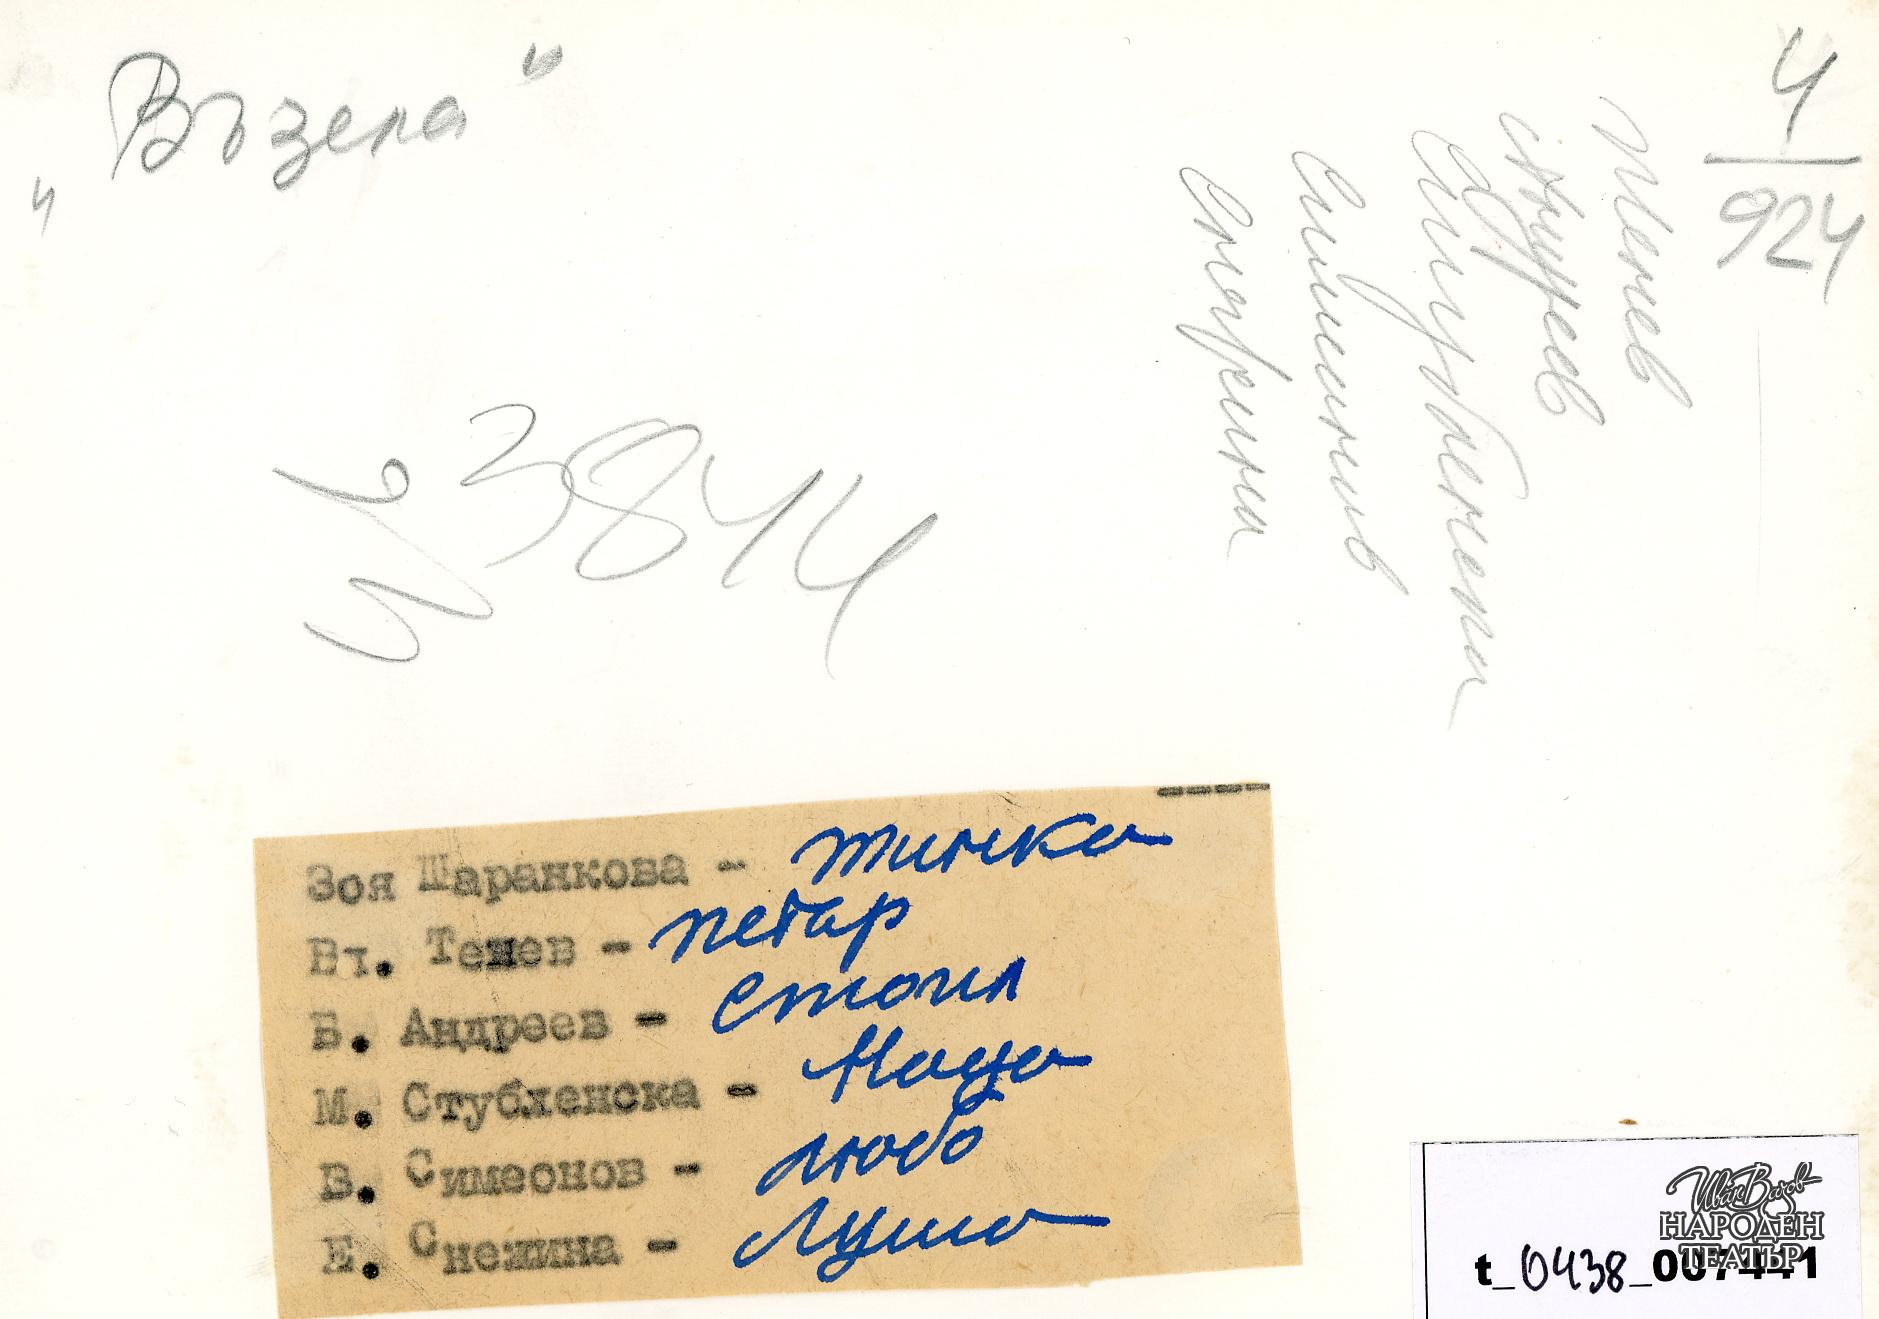 „Възела"
4
924
Тенев
Стубленска
Симеонов
N/6 3844
Зоя Шаранкова - Тинка
Вл. Тенев - Петър
Б. Андреев - Стоил
М. Стубленска - Маца
В. Симеонов - Любо
Е. Снежина - Луша
Иван Вазов
НАРОДЕН
ТЕАТЪР
t_0438_007441